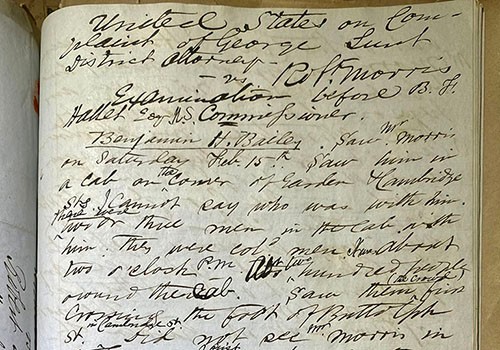 United States on Com-
plaint of George Lunt
District Attorney
- vs. Robt. Morris
Examination before B. F.
Hallet Esq U.S. Commissioner.
Benjamin H. Bailey. Saw Mr Morris
on Saturday Feb 15th Saw him in
a cab on the corner of Garden & Cambridge
Sts I cannot say who was with him.
there were
two or three men in the cab with
him. they were cold men. About
two o'clock P.M. two hundred people
around the cab. Saw them first
crossing the foot of
St. in Cambridge St. Did not see Mr Morris in